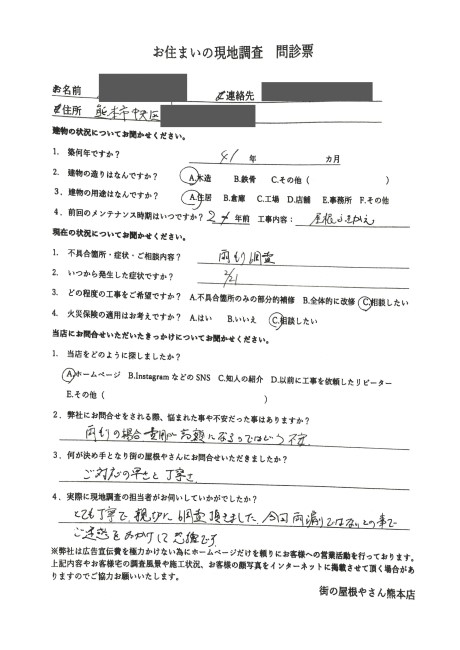 お住まいの現地調査 問診票
お名前 ご連絡先
ご住所 熊本市中央区
建物の状況についてお聞かせください。
1. 築何年ですか? 41 年 カ月
2. 建物の造りはなんですか? A.木造 B.鉄骨 C.その他( )
3. 建物の用途はなんですか? A.住居 B.倉庫 C.工場 D.店舗 E.事務所 F.その他
4. 前回のメンテナンス時期はいつですか? 年前 工事内容: 屋根ふきかえ
現在の状況についてお聞かせください。
1. 不具合箇所・症状・ご相談内容? 雨もり調査
2. いつから発生した症状ですか? 2/21
3. どの程度の工事をご希望ですか? A.不具合箇所のみの部分的補修 B.全体的に改修 C.相談したい
4. 火災保険の適用はお考えですか? A.はい B.いいえ C.相談したい
当店にお問合せいただいたきっかけについてお聞かせください。
1. 当店をどのように探しましたか?
A.ホームページ B.InstagramなどのSNS C.知人の紹介 D.以前に工事を依頼したリピーター
E.その他( )
2. 弊社にお問合せをされる際、悩まれた事や不安だった事はありますか?
雨もりの場合費用が高額になるのではという不安
3. 何が決め手となり街の屋根やさんにお問合せいただきましたか?
ご対応の早さと丁寧さ
4. 実際に現地調査の担当者がお伺いしていかがでしたか?
とても丁寧で、親切に調査頂きました。今回雨漏りではないとの事で
ご迷惑をおかけして恐縮です
※弊社は広告宣伝費を極力かけない為にホームページだけを頼りにお客様への営業活動を行っております。
上記内容やお客様宅の調査風景や施工状況、お客様の顔写真をインターネットに掲載させて頂く場合があ
りますのでご協力お願いいたします。
街の屋根やさん熊本店